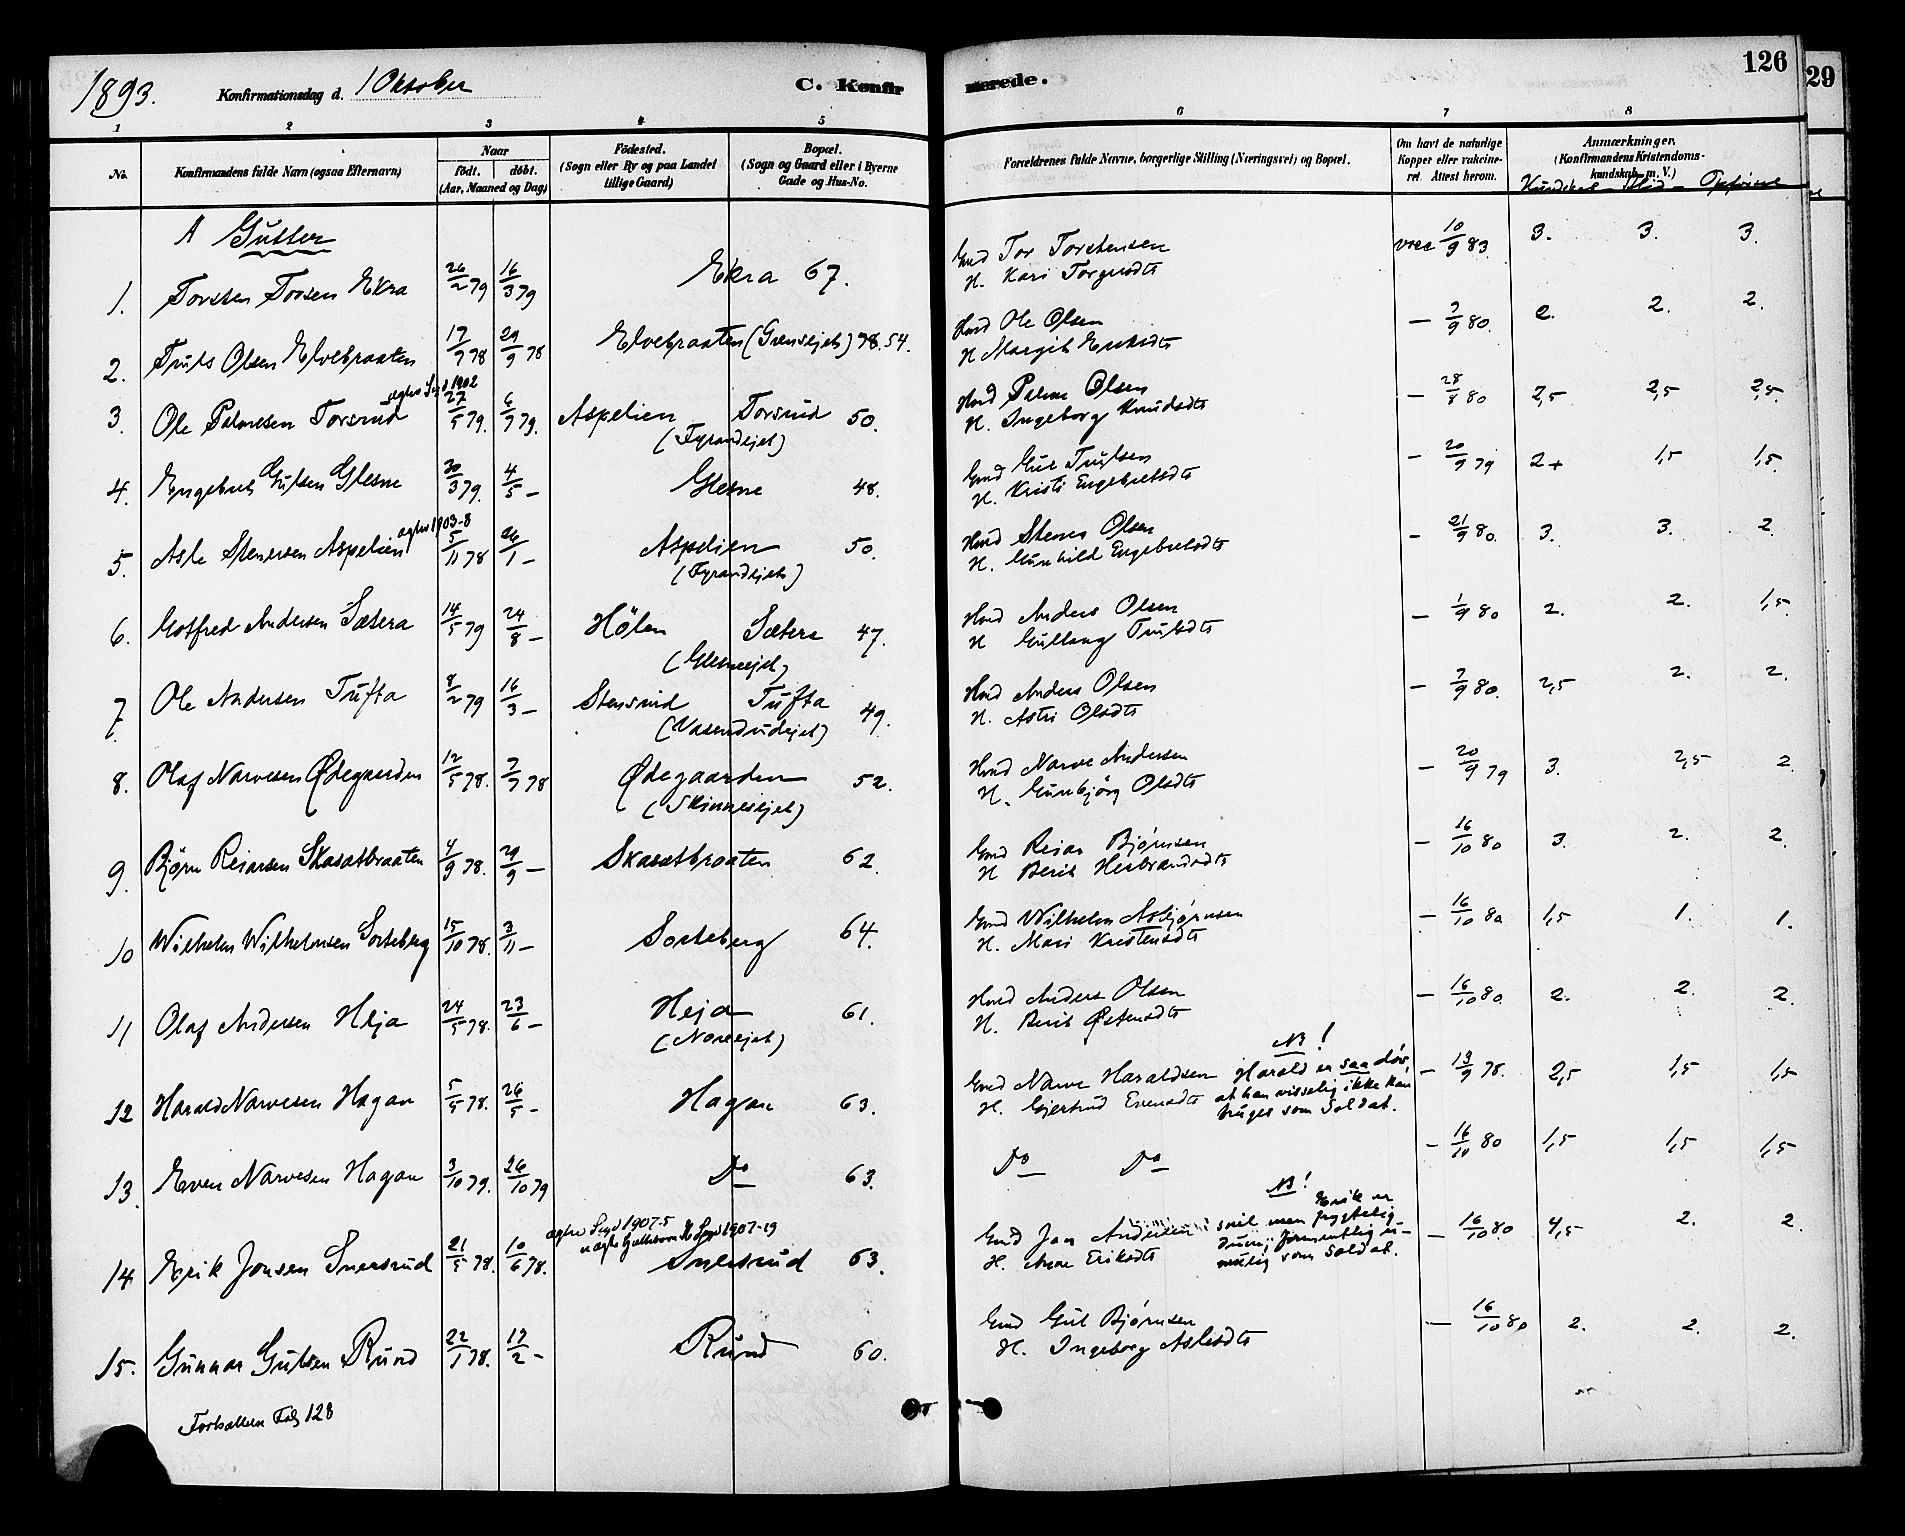 126
29
1893. Konfirmationsdag d. 1 Oktober C. Konfir merede.
1 2 3 4 5 6 7 8
No. Konfirmandens fulde Navn (ogsaa Efternavn) Naar födt. döbt. (Aar, Maaned og Dag) Födested. (Sogn eller By og paa Landet tillige Gaard) Bopæl. (Sogn og Gaard eller i Byerne Gade og Hus-No. Forældrenes fulde Navne, borgerlige Stilling (Næringsvei) og Bopæl. Om havt de naturlige Kopper eller vakcineret. Attest herom. Anmærkninger. (Konfirmandens Kristendomskundskab m. V.)
Kundskab Flid Opførsel
A Gutter
1. Torsten Torsen Ekra 26/2 79 16/3 79 Ekra 67. Gmd Tor Torstensen vacc 10/9 83 3. 3. 3.
H. Kari Torgersdt
2. Truls Olsen Elvebraaten 17/9 78 29/9 78 Elvebraaten (Grensejet) 78.54. Hmd Ole Olsen – 7/9 80. 2. 2. 2.
H Margit Eriksdt
3. Ole Palmesen Torsrud 27/5 79. 6/7 79. Aspelien Torsrud 50. Hmd Palme Olsen – 28/8 80 2,5 2,5 2,5
(Fyrandejet) H. Ingeborg Knudsdt
4. Engebret Gulsen Glesne 30/3 79. 4/5 – Glesne 48. Gmd Gul Trulsen – 20/9 79 2+ 1,5 1,5
H. Kristi Engebretsdt
5. Asle Stenersen Aspelien 5/11 78 26/1 – Aspelien 50. Hmd Stener Olsen – 21/9 80. 3. 3. 2
(Fyrandejet) H. Gunhild Engebretsdt
6. Gotfred Andersen Sætera 14/5 79 24/8 – Hölen Sætera 47. Hmd Anders Olsen – 1/9 80 2. 2. 1,5
(Glesneejet) H Gullaug Trulsdt
7. Ole Andersen Tufta 8/2 79 16/3 – Stensrud Tufta 49. Hmd Anders Olsen – 7/9 80. 2,5 2. 2.
(Vasendrudejet) H. Astri Olsdt
8. Olaf Narvesen Ødegaarden 12/5 78. 7/7 78 Ødegaarden 52. Hmd Narve Andersen – 20/9 79 3. 2,5 2.
(Skinnesejet) H. Gunbjörg Olsdt
9. Björn Reiarsen Skasætbraaten 4/9 78. 29/9 – Skasætbraaten 62. Gmd Reiar Bjørnsen – 16/10 80 3. 2. 2.
H Berit Herbrandsdt
10 Wilhelm Wilhelmsen Sorteberg 15/10 78. 3/11 – Sorteberg 64. Gmd Wilhelm Asbjørnsen – 16/10 80 1,5 1. 1.
H. Mari Kristensdt
11 Olaf Andersen Heja 24/5 78. 23/6 – Heja 61. Hmd Anders Olsen – 16/10 80. 2. 2. 2.
(Noreejet) H. Berit Østensdt
NB!
12 Harald Narvesen Hagan 5/5 78. 26/5 – Hagan 63. Gmd Narve Haraldsen Harald er saa døv, – 13/9 78. 2,5 1,5 1,5
H. Gjertrud Evensdt at han visselig ikke kan
bruges som Soldat.
13. Even Narvesen Hagan 3/10 79. 26/10 79 Do 63. Do Do – 16/10 80 1,5 1,5 1,5
NB!
14 Erik Jonsen Snersrud 21/5 78. 10/6 78. Snersrud 63. Gmd Jon Andersen snil men frygtelig – 16/10 80 4,5 2. 2.
Erik er
H. Anne Eriksdt dum; formentlig umulig som Soldat.
15. Gunnar Gulsen Rund 22/1 78. 17/2 – Rund 60. Gmd Gul Bjørnsen – 16/10 80 2. 2. 2.
H. Ingeborg Aslesdt
Fortsættes Fol 128